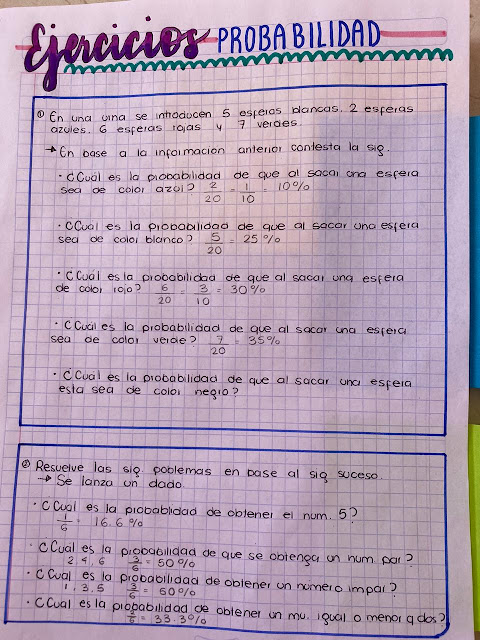 Ejercicios PROBABILIDAD
① En una urna se introducen 5 esferas blancas. 2 esferas
azules. 6 esferas rojas y 7 verdes.
→ En base a la informacion anterior contesta la sig.
· ¿Cuál es la probabilidad de que al sacar una esfera
sea de color azul? 2/20 = 1/10 = 10%
· ¿Cual es la probabilidad de que al sacar una esfera
sea de color blanco? 5/20 = 25%
· ¿Cuál es la probabilidad de que al sacar una esfera
de color rojo? 6/20 = 3/10 = 30%
· ¿Cual es la probabilidad de que al sacar una esfera
sea de color verde? 7/20 = 35%
· ¿Cual es la probabilidad de que al sacar una esfera
esta sea de color negro?
② Resuelve las sig. poblemas en base al sig suceso.
→ Se lanza un dado.
· ¿Cual es la probablidad de obtener el num. 5?
1/6 = 16.6%
· ¿Cual es la probabilidad de que se obtenga un num par?
2, 4, 6 3/6 = 50%
· ¿Cual es la probabilidad de obtener un número impar?
1, 3, 5 3/6 = 50%
· ¿Cual es la probabilidad de obtener un nu. igual o menor a dos?
2/6 = 33.3%